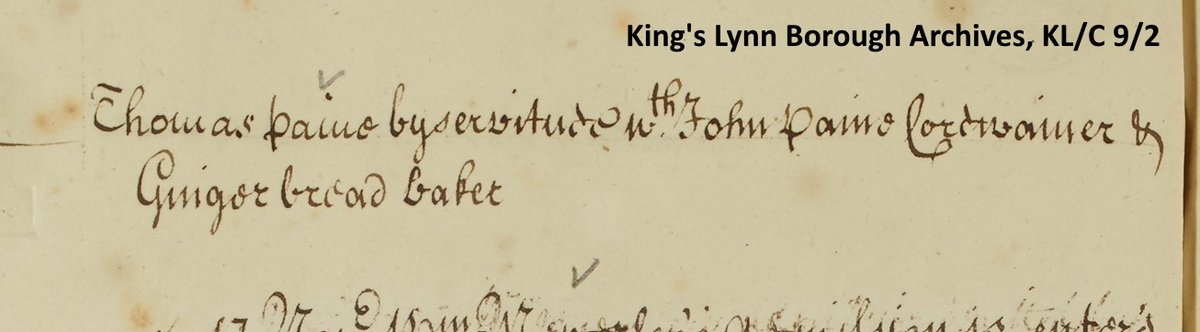 King's Lynn Borough Archives, KL/C 9/2
Thomas Paine by servitude wth John Paine Cordwainer &
Ginger bread baker